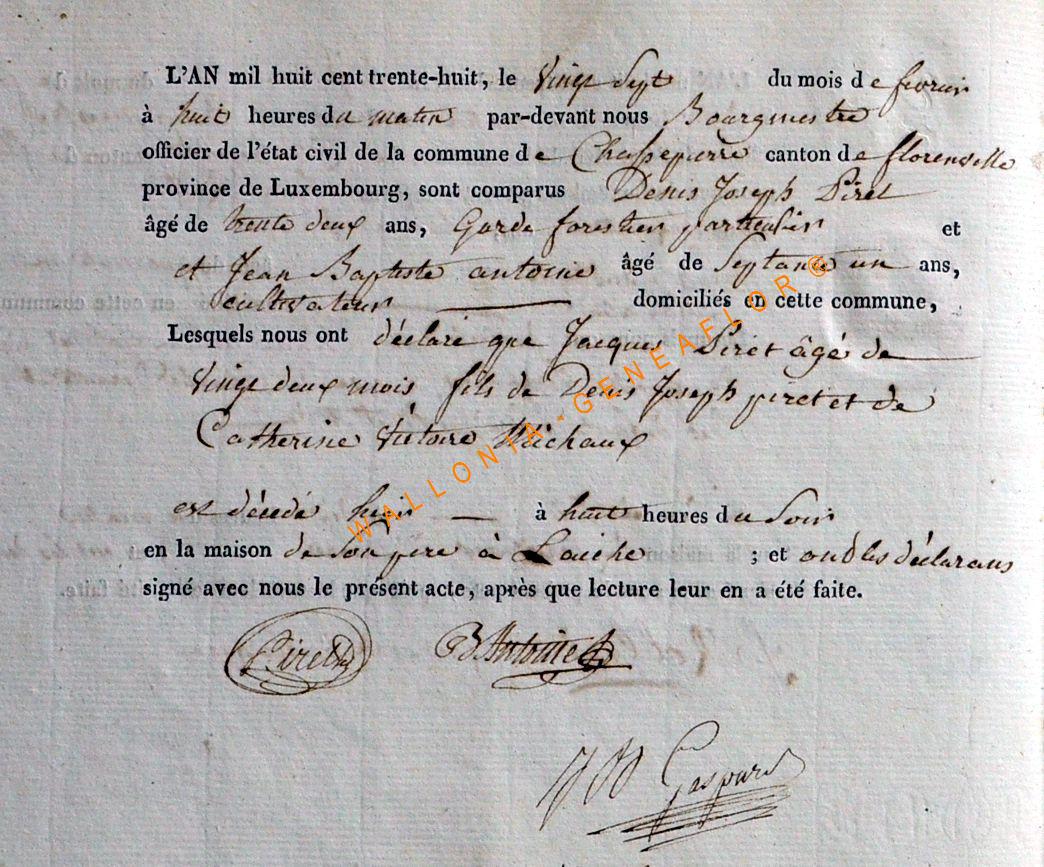 L'AN mil huit cent trente-huit, le vingt Sept du mois de fevrier
à huit heures du matin par-devant nous Bourgmestre
officier de l'état civil de la commune de Chassepierre canton de florenville
province de Luxembourg, sont comparus Denis Joseph Piret
âgé de trente deux ans, Garde forestier particulier et
et Jean Baptiste antoine âgé de Septante un ans,
cultivateur domiciliés en cette commune,
Lesquels nous ont déclaré que Jacques Piret âgé de
vingt deux mois fils de Denis Joseph piret et de
Catherine Victoire Michaux
est décédé hier à huit heures du Soir
en la maison de Son pere à Laiche ; et ont les déclarans
signé avec nous le présent acte, après que lecture leur en a été faite.
Piret
B Antoine
Gaspard
WALLONIA-GENEAFLOR®